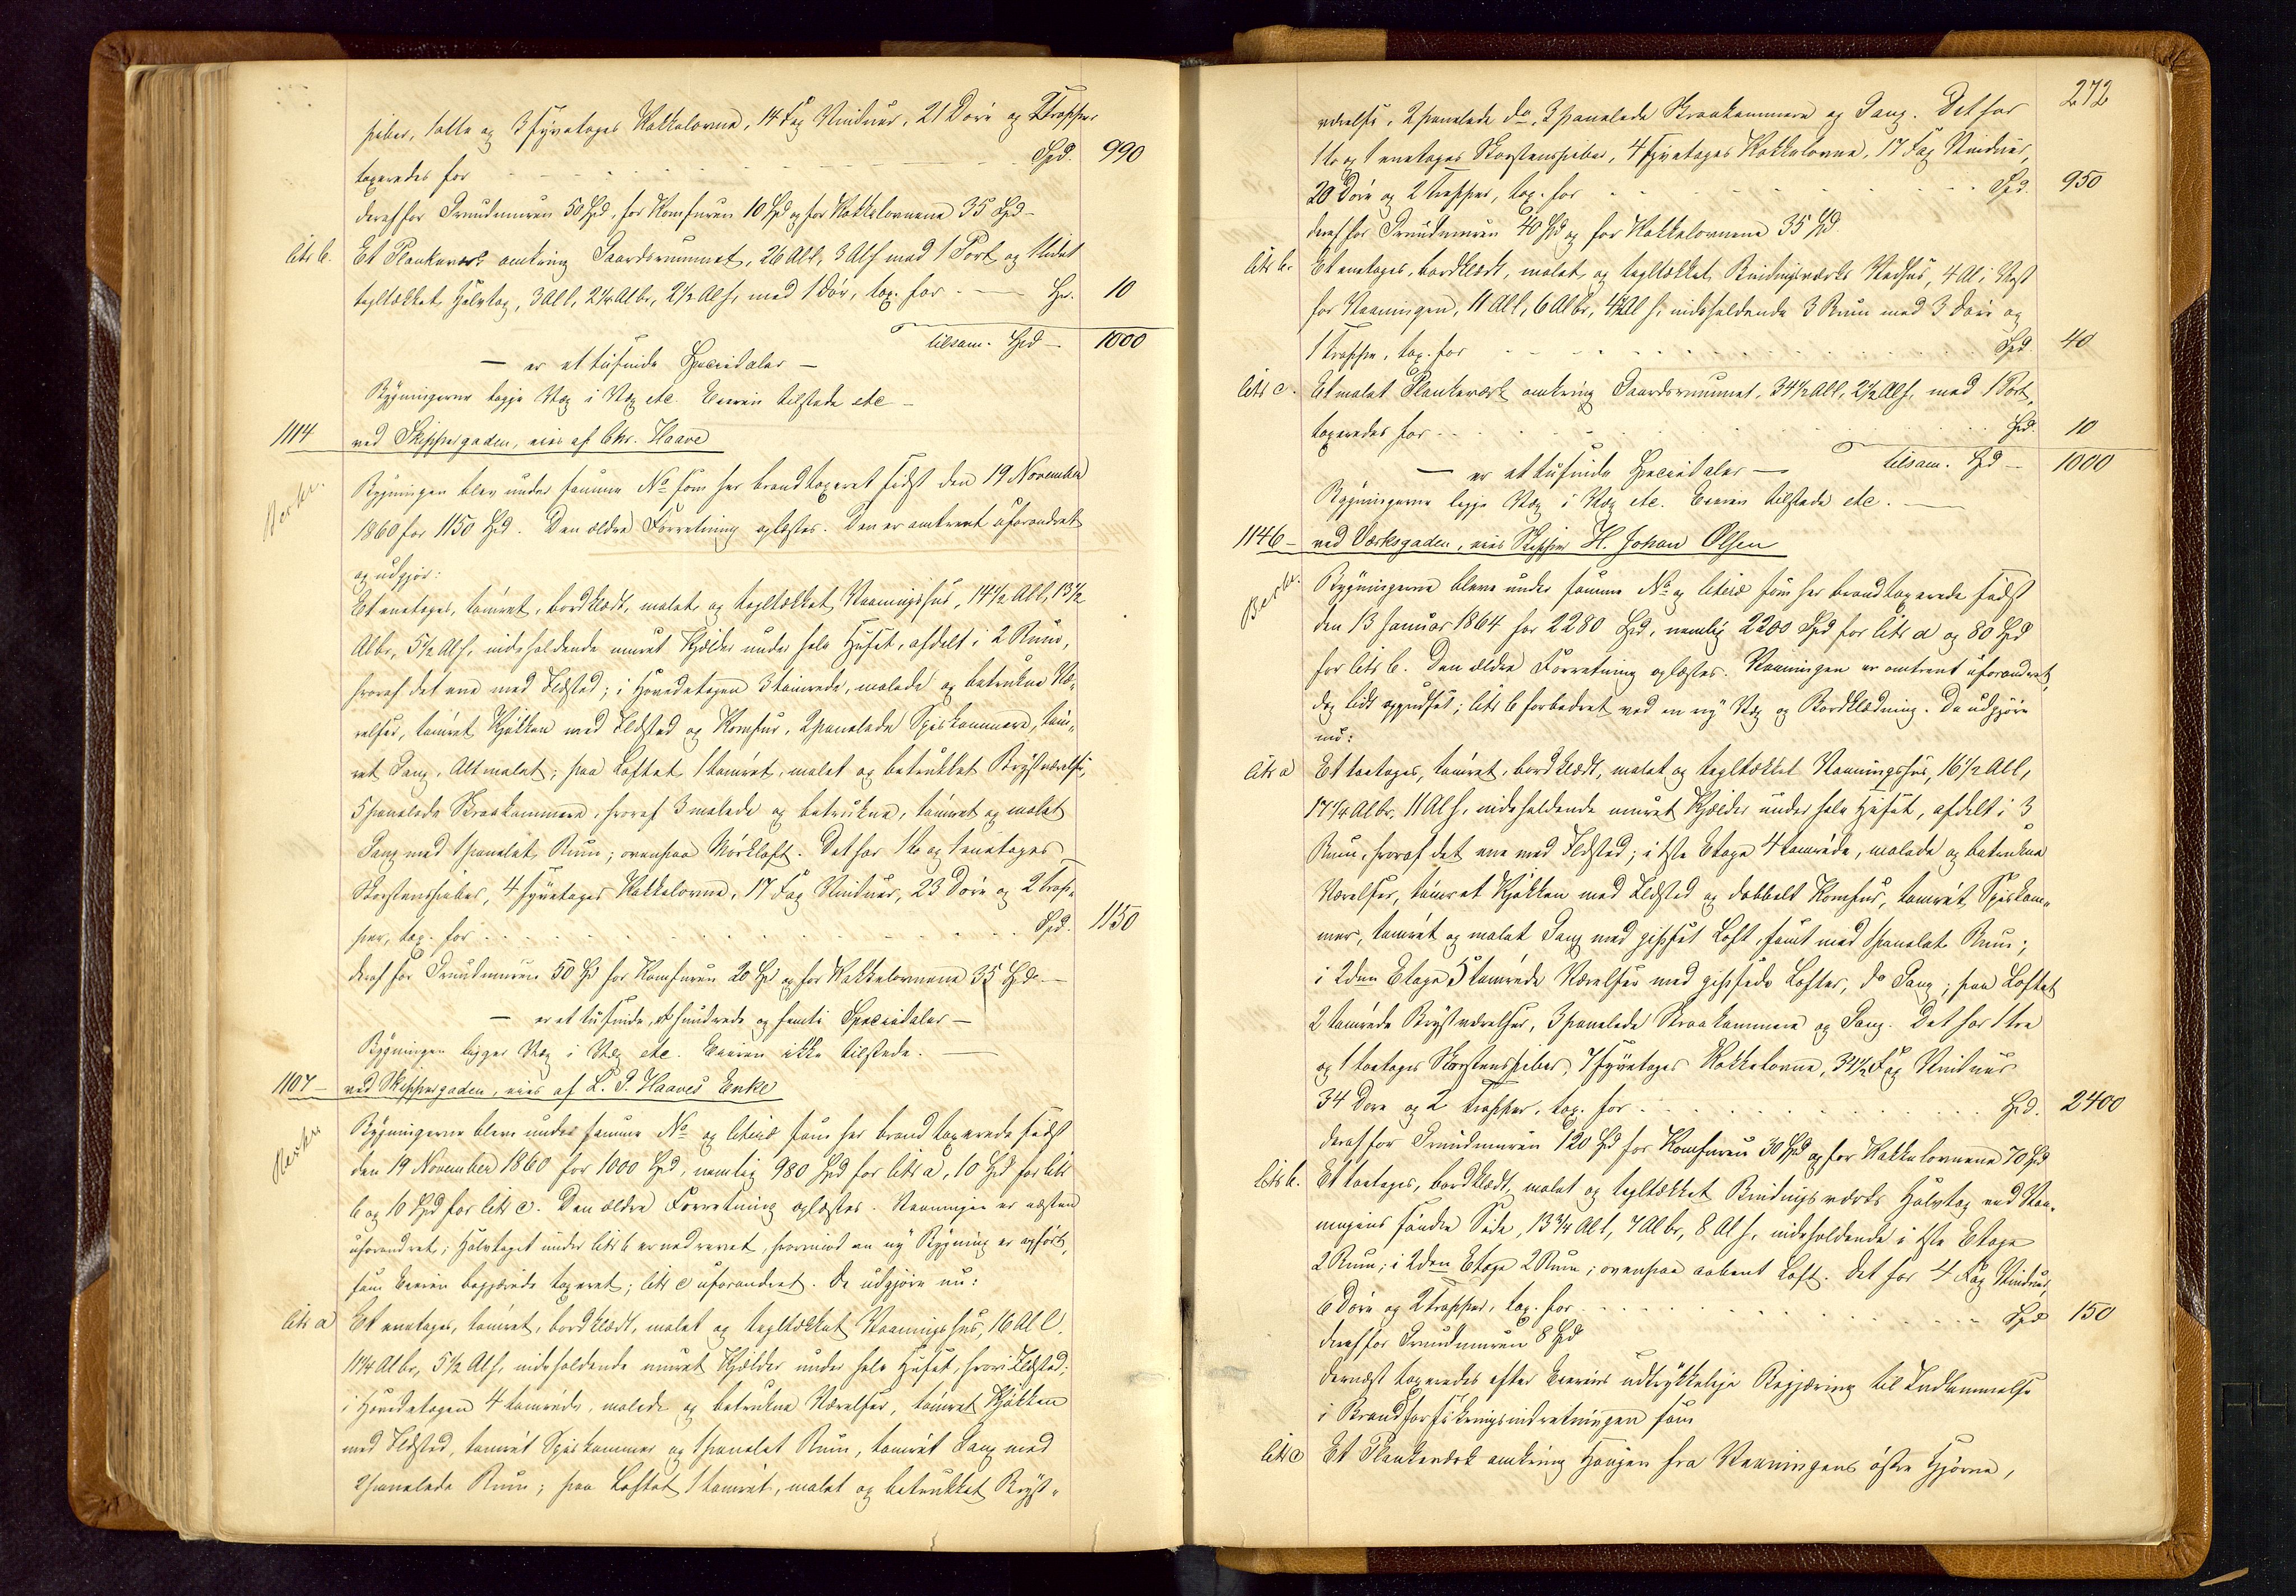 piber, 1 otte og 3 fyretages Kakkelovne, 14 Fag Vinduer, 21 Döre og 2 Trapper
taxeredes for Spd. 990
deraf for Grundmuren 50 Spd, for Komfuren 10 Spd og for Kakkelovnene 35 Spd
litr b. Et Plankeværk omkring Gaardsrummet, 26 Al l, 3 Al h med 1 Port og 1 lidet
tegltækket Halvtag, 3 Al l, 2 1/4 Al br, 2 1/2 Al h, med 1 Dör, tax. for Spd. 10
tilsam. Spd 1000
— er et tusinde Speciedaler —
Bygningerne ligge Væg i Væg etc. Eieren tilstede etc —
1114 ved Skippergaden, eies af Chr. Haave
Bygningen blev under samme No som her brandtaxeret sidst den 19 November
1860 for 1150 Spd. Den ældre Forretning oplæstes. Den er omtrent uforandret
og udgjör:
Et enetages, tömret, bordklædt, malet og tegltækket Vaaningshus, 14 1/2 Al l, 13 1/2
Al br, 5 1/2 Al h, indeholdende muret Kjælder under hele Huset, afdelt i 2 Rum,
hvoraf det ene med Ildsted; i Hovedetagen 3 tömrede, malede og betrukne Væ-
relser, tömret Kjökken med Ildsted og Komfur, 2 panelede Spiskammere, töm-
ret Gang, Alt malet; paa Loftet 1 tömret, malet og betrukket Brystværelse,
5 panelede Skraakammere, hvoraf 3 malede og betrukne, tömret og malet
Gang med 1 panelet Rum; ovenpaa Mörkloft. Det har 1 to og 1 enetages
Skorstenspiber, 4 fyretages Kakkelovne, 17 Fag Vinduer, 23 Döre og 2 Trap-
per, tax. for Spd. 1150
deraf for Grundmuren 50 Spd for Komfuren 20 Spd og for Kakkelovnene 35 Spd —
— er et tusinde, et hundrede og femti Speciedaler —
Bygningen ligger Væg i Væg etc. Eieren ikke tilstede. —
1107 — ved Skippergaden, eies af L. P. Haaves Enke
Bygningerne bleve under samme No og litris som her brandtaxerede sidst
den 19 November 1860 for 1000 Spd, nemlig 980 Spd for litr a, 10 Spd for litr
b og 10 Spd for litr c. Den ældre Forretning oplæstes. Vaaningen er næsten
uforandret; Halvtaget under litr b er nedrevet, hvorimod en ny Bygning er opfört,
som Eieren begjærede taxeret; litr c uforandret. De udgjöre nu:
litr a Et enetages, tömret, bordklædt, malet og tegltækket Vaaningshus, 16 Al l,
11 1/4 Al br, 5 1/2 Al h, indeholdende muret Kjælder under hele Huset, hvori Ildsted;
i Hovedetagen 4 tömrede, malede og betrukne Værelser, tömret Kjökken
med Ildsted, tömret Spiskammer og 1 panelet Rum, tömret Gang med
2 panelede Rum; paa Loftet 1 tömret, malet og betrukket Bryst-
272
værelse, 2 panelede do, 3 panelede Skraakammere og Gang. Det har
1 to og 1 enetages Skorstenspiber, 4 fyretages Kakkelovne, 17 Fag Vinduer,
20 Döre og 2 Trapper, tax. for Spd. 950
deraf for Grundmuren 40 Spd og for Kakkelovnene 35 Spd.
litr b. Et enetages, bordklædt, malet og tegltækket Bindingsværks Vedhus, 4 Al i Vest
for Vaaningen, 11 Al l, 6 Al br, 4 1/2 Al h, indeholdende 3 Rum med 3 Döre og
1 Trappe, tax. for Spd. 40
litr c. Et malet Plankeværk omkring Gaardsrummet, 34 1/2 Al l, 2 1/2 Al h, med 1 Port,
taxeredes for Spd. 10
— er et tusinde Speciedaler — tilsam. Spd — 1000
Bygningerne ligge Væg i Væg etc. Eieren tilstede etc. —
1146 — ved Værksgaden, eies Skipper H. Johan Olsen
Bygningerne bleve under samme No og litris som her brandtaxerede sidst
den 13 Januar 1864 for 2280 Spd, nemlig 2200 Spd for litr a og 80 Spd
for litr b. Den ældre Forretning oplæstes. Vaaningen er omtrent uforandret,
dog lidt oppudset; litr b forbedret ved en ny Væg og Bordklædning. De udgjöre
nu:
litr a Et toetages, tömret, bordklædt, malet og tegltækket Vaaningshus, 16 1/2 Al l,
17 1/4 Al br, 11 Al h, indeholdende muret Kjælder under hele Huset, afdelt i 3
Rum, hvoraf det ene med Ildsted; i 1ste Etage 4 tömrede, malede og betrukne
Værelser, tömret Kjökken med Ildsted og dobbelt Komfur, tömret Spiskam-
mer, tömret og malet Gang med gipset Loft, samt med 1 panelet Rum;
i 2den Etage 5 tömrede Værelser med gipsede Lofter, do Gang; paa Loftet
2 tömrede Brystværelser, 3 panelede Skraakammere og Gang. Det har 1 tre
og 1 toetages Skorstenspiber, 7 fyretages Kakkelovne, 34 1/2 Fag Vinduer
34 Döre og 2 Trapper, tax. for Spd. 2400
deraf for Grundmuren 120 Spd for Komfuren 30 Spd og for Kakkelovnene 70 Spd
litr b. Et toetages, bordklædt, malet og tegltækket Bindingsværks Halvtag ved Vaa-
ningens söndre Side, 13 3/4 Al l, 7 Al br, 8 Al h, indeholdende i 1ste Etage
2 Rum; i 2den Etage 2 Rum; ovenpaa aabent Loft. Det har 4 Fag Vinduer,
6 Döre og 2 Trapper, tax. for Spd 150
deraf for Grundmuren 8 Spd
dernæst taxeredes efter Eierens udtrykkelige Begjæring til Indlemmelse
i Brandforsikringsindretningen som
litr c Et Plankeværk omkring Haugen fra Vaaningens östre Hjörne,